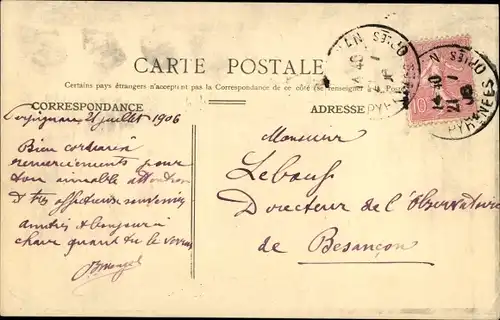 CARTE POSTALE
Certains pays étrangers n'acceptent pas la Correspondance de ce côté (se renseigner à la Poste)
CORRESPONDANCE
ADRESSE
Perpignan 21 juillet 1906
Bien cordiaux
remerciements pour
ton aimable attention
et très affectueux souvenirs
amitiés et bonjour à
quand tu le verras
Monsieur
Lebeuf
Directeur de l'Observatoire
de Besançon
10
14 40
21
PYRENEES